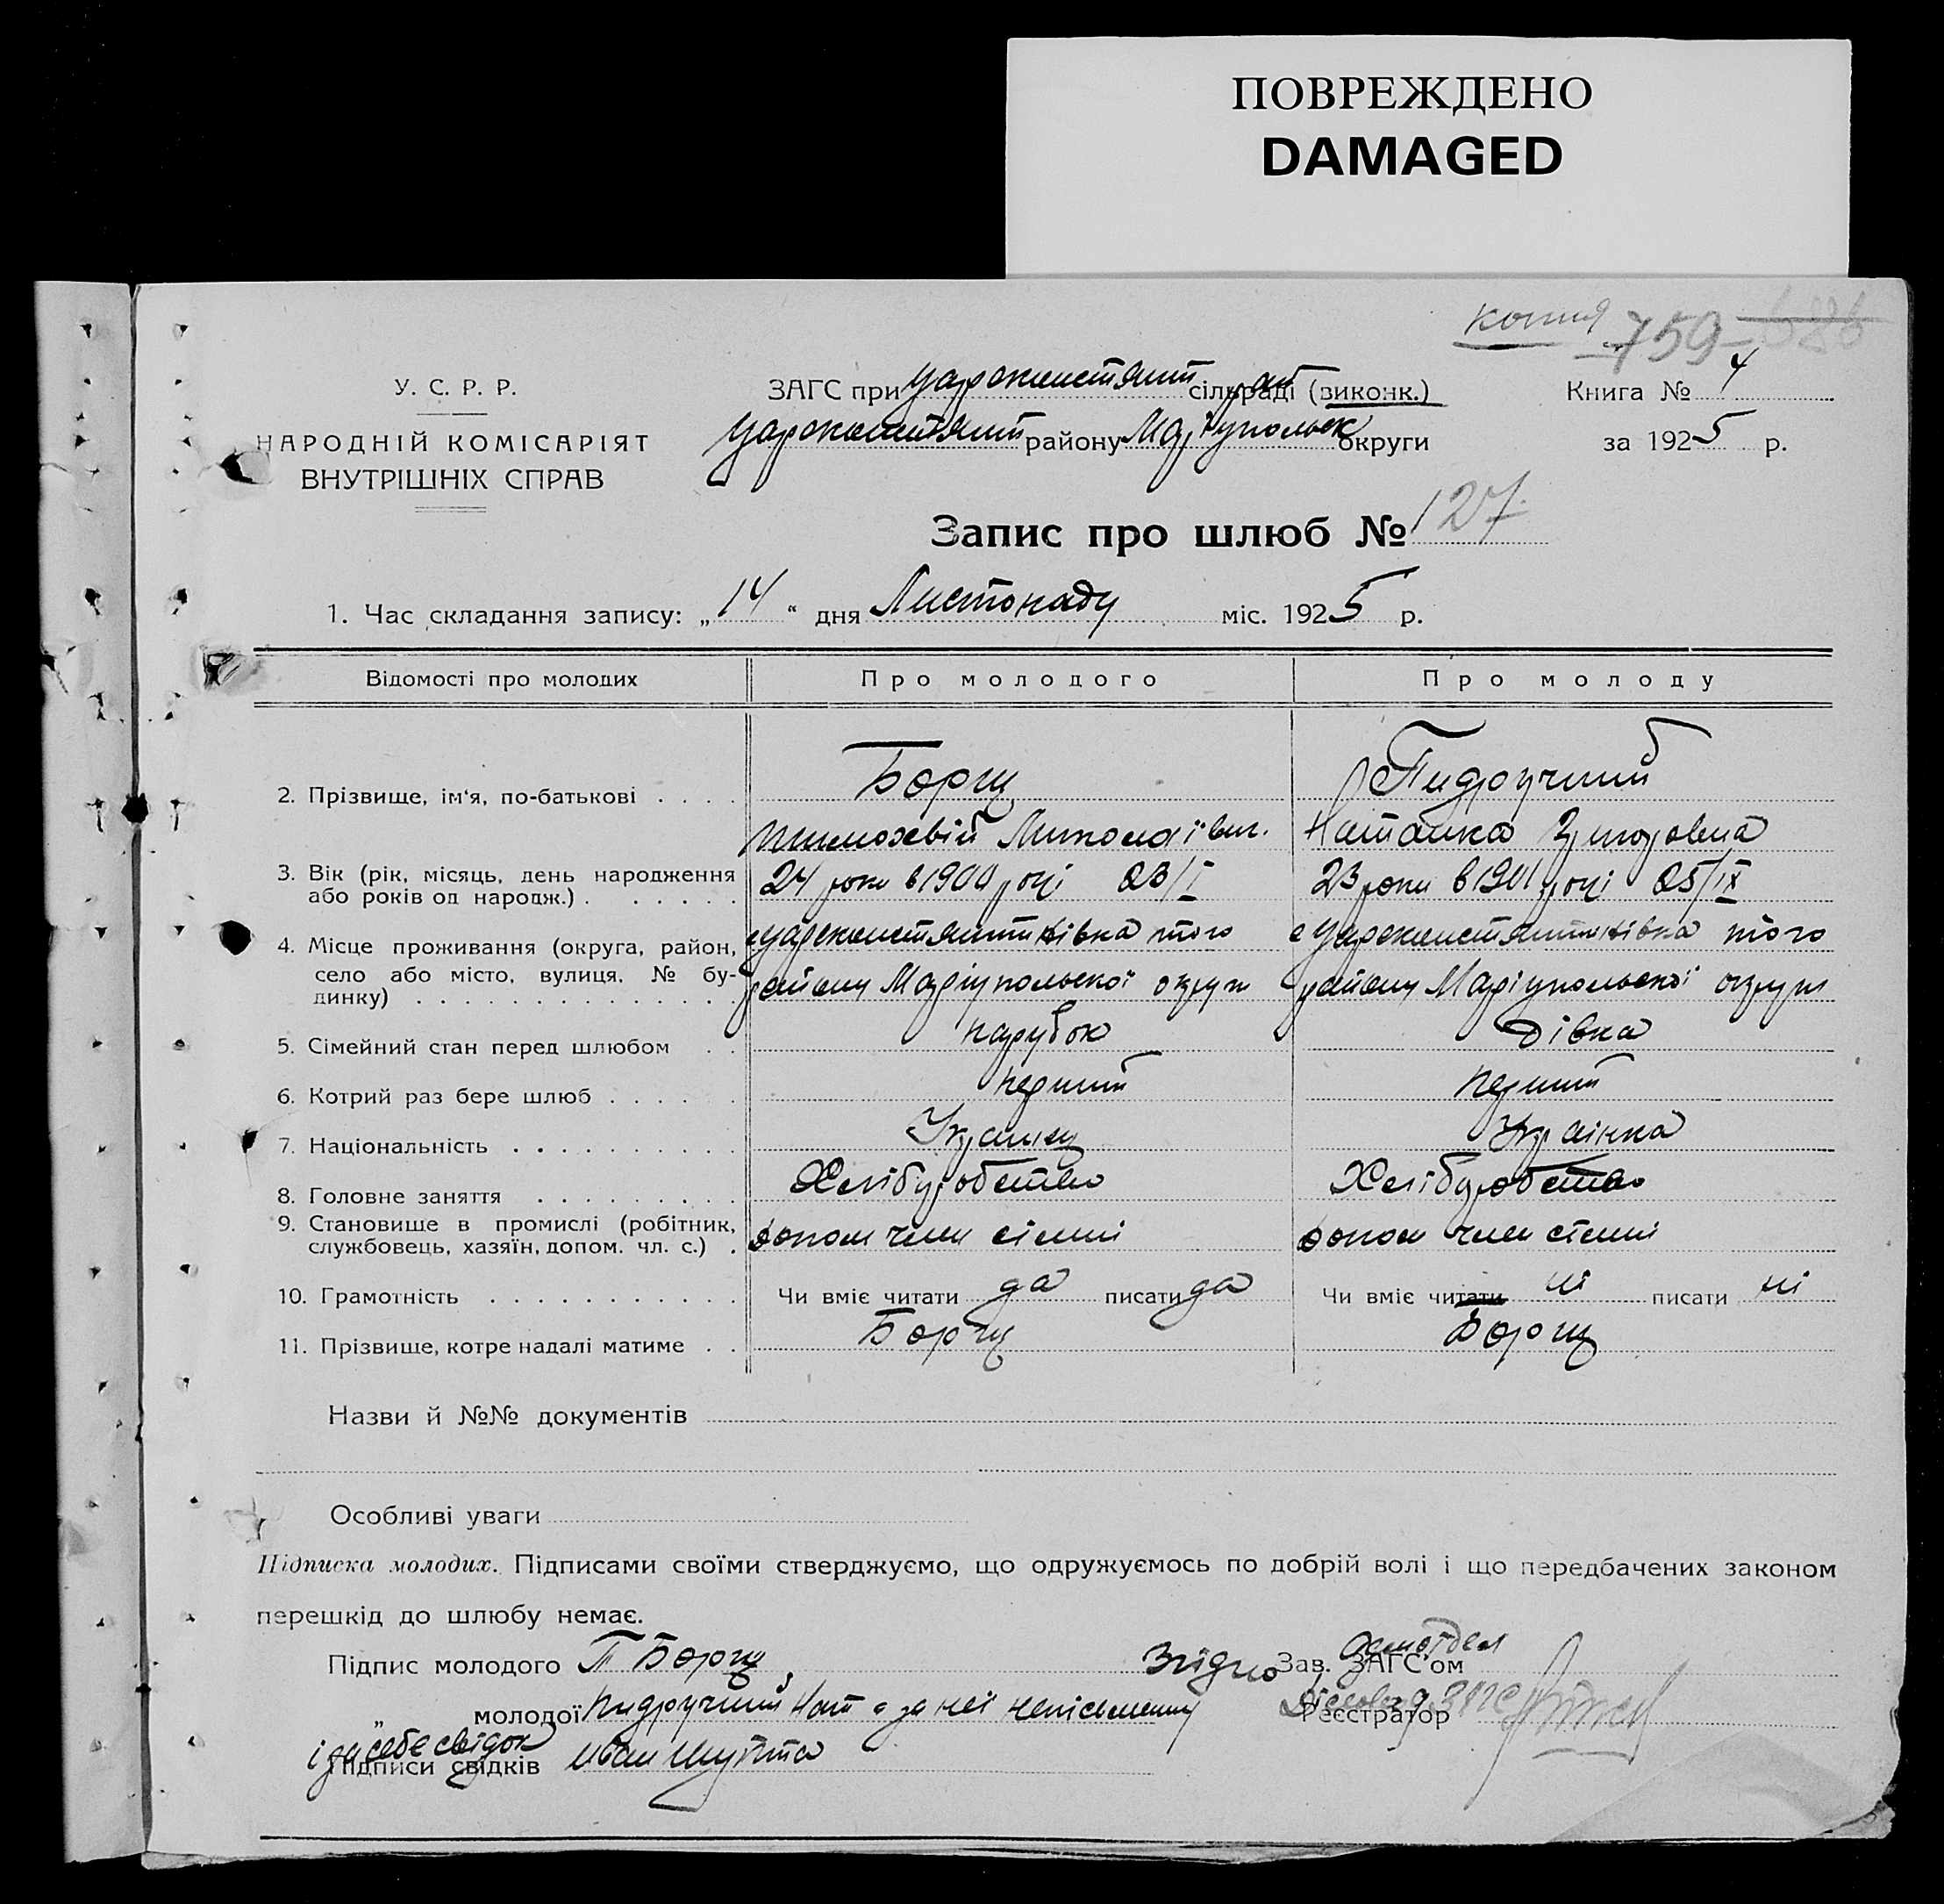 ПОВРЕЖДЕНО
DAMAGED
копия 759 686
У. С. Р. Р.
НАРОДНІЙ КОМІСАРІЯТ
ВНУТРІШНІХ СПРАВ
ЗАГС при Царокистянт сільраді (виконк.)
Цароконстянт району Маріупольск округи
Книга № 4
за 1925 р.
Запис про шлюб № 127
1. Час складання запису: „14“ дня Листопаду міс. 1925 р.
Відомості про молодих Про молодого Про молоду
2. Прізвище, ім'я, по-батькові Борщ Пидручний
Тимохвій Миколаївич. Наталка Григоровна
3. Вік (рік, місяць, день народження 24 роки в 1900 році 23/I 23 роки в 1901 році 25/IX
або років од народж.)
4. Місце проживання (округа, район, с Цареконстянтинівка того с Царекистянтинівка того
село або місто, вулиця, № бу-
динку) району Маріупольскої округи району Маріупольскої округи
5. Сімейний стан перед шлюбом парубок дівка
6. Котрий раз бере шлюб перший перший
7. Національність Українец Українка
8. Головне заняття Хлібуробство Хлібуробство
9. Становище в промислі (робітник, допом член сімні допом член сімні
службовець, хазяїн, допом. чл. с.)
10. Грамотність Чи вміє читати да писати да Чи вміє читати ні писати ні
11. Прізвище, котре надалі матиме Борщ Борщ
Назви й №№ документів
Особливі уваги
Підписка молодих. Підписами своїми стверджуємо, що одружуємось по добрій волі і що передбачених законом
перешкід до шлюбу немає.
Підпис молодого Т Борщ Згідно Зав. ЗАГС'ом
„ молодої Пидручний Нат а за неї неписьменну Реєстратор
і за себе свідок
Підписи свідків Иван